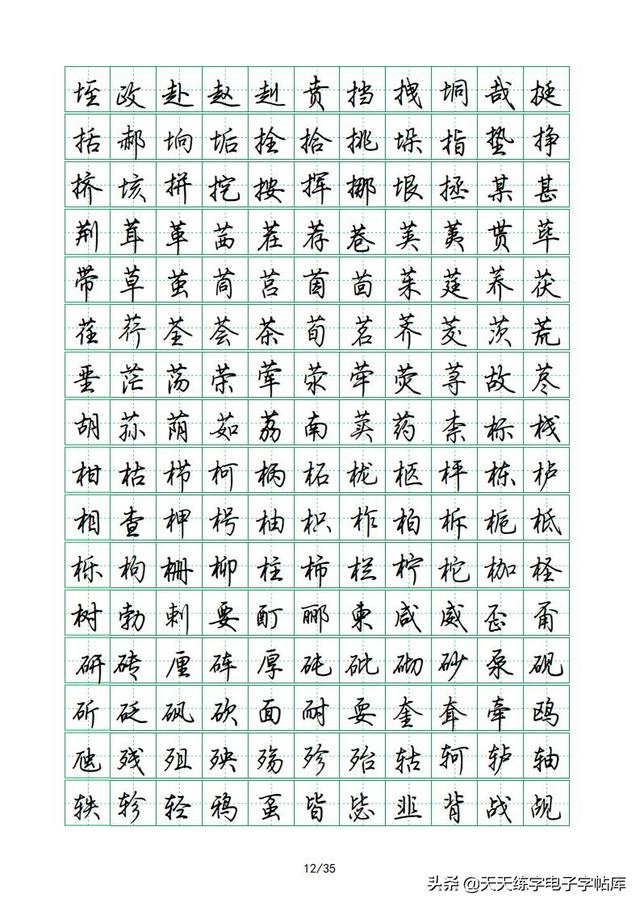 垤政赴赵赳贲挡拽垌哉挺
括郝垧垢拴拾挑垛指垫挣
挤垓拼挖按挥挪垠拯某甚
荆茸革茜茬荐巷荚荑贯荜
带草茧茼莒茵茴茱莛荞茯
荏荇荃荟茶荀茗荠茭茨荒
垩茫荡荣荤荥荦荧荨故荩
胡荪荫茹荔南荚药柰标栈
柑枯栉柯柄柘栊柩枰栋栌
相查柙枵柚枳柞柏柝栀柢
栎枸栅柳柱柿栏柠柁枷柽
树勃剌要酊郦柬咸威歪甭
研砖厘砗厚砘砒砌砂泵砚
斫砭砜砍面耐耍奎耷牵鸥
虺残殂殃殇殄殆轱轲轳轴
轶轸轻鸦虿皆毖韭背战觇
12/35
头条@天天练字电子字帖库